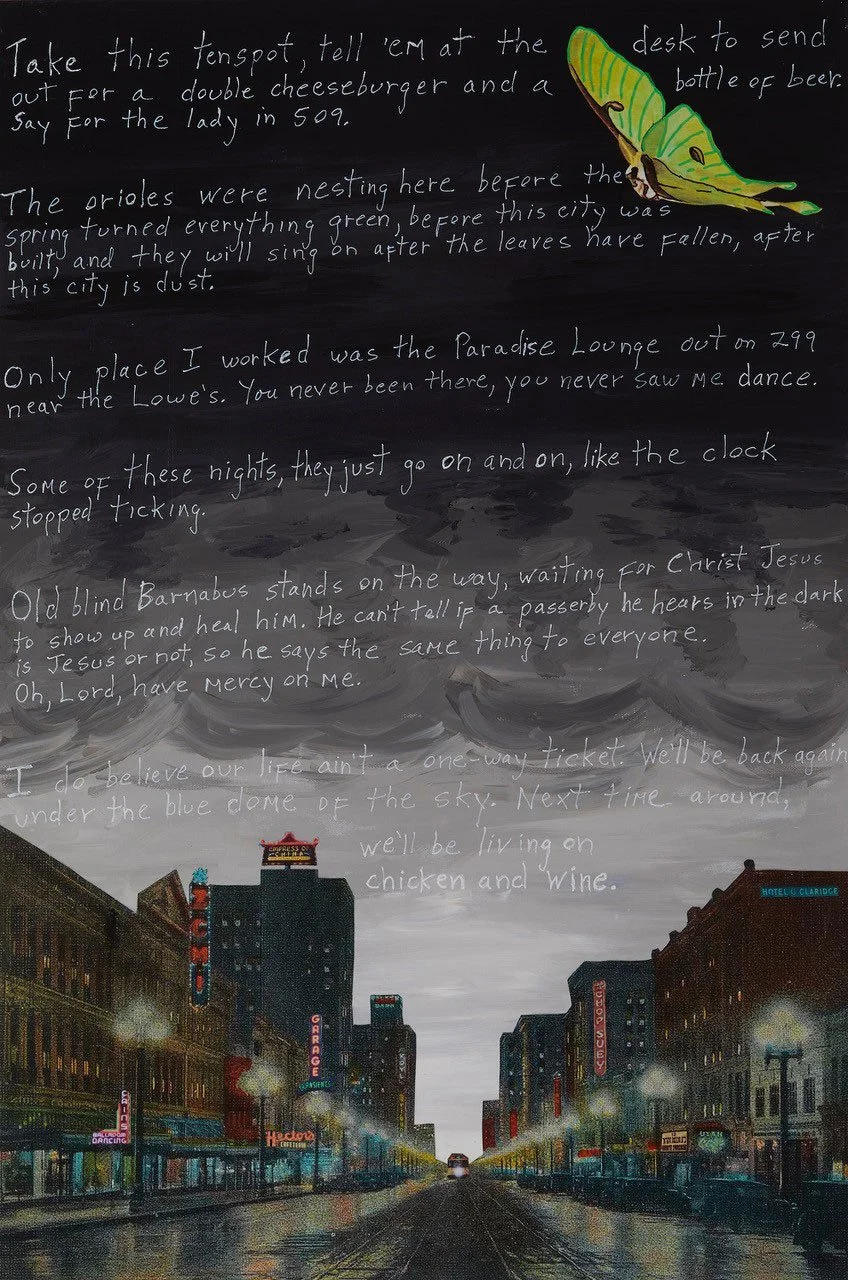 Take this tenspot, tell 'em at the desk to send
out for a double cheeseburger and a bottle of beer.
Say for the lady in 509.
The orioles were nesting here before the
spring turned everything green, before this city was
built, and they will sing on after the leaves have fallen, after
this city is dust.
Only place I worked was the Paradise Lounge out on 299
near the Lowe's. You never been there, you never saw me dance.
Some of these nights, they just go on and on, like the clock
stopped ticking.
Old blind Barnabus stands on the way, waiting for Christ Jesus
to show up and heal him. He can't tell if a passerby he hears in the dark
is Jesus or not, so he says the same thing to everyone.
Oh, Lord, have mercy on me.
I do believe our life ain't a one-way ticket. We'll be back again
under the blue dome of the sky. Next time around,
we'll be living on
chicken and wine.
EMPRESS OF
CHINA
HOTEL CLARIDGE
GARAGE
CHOP SUEY
BALLROOM
DANCING
Hector's
CAFETERIA